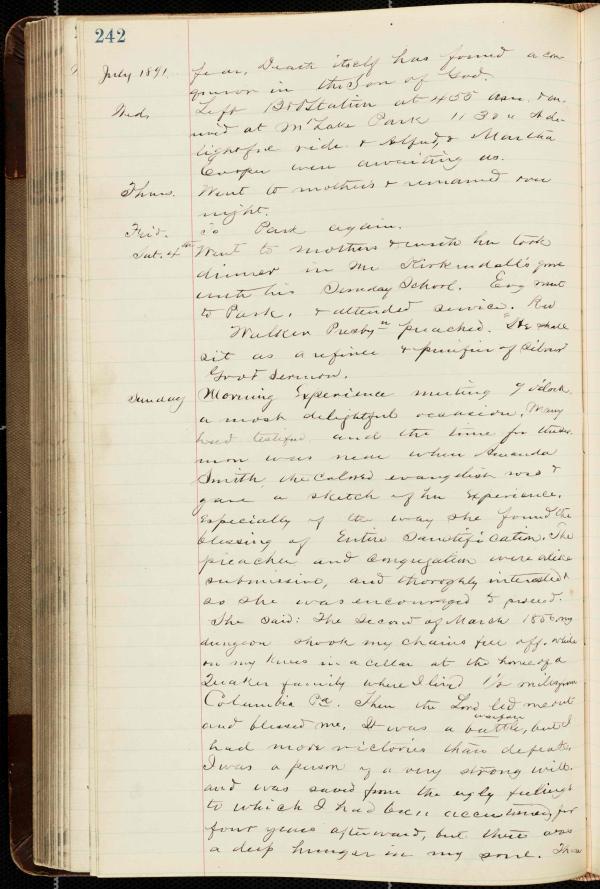 242
July 1891. fear, Death itself has found a con-
queror in the Son of God.
Weds. Left B&O Station at 455 a.m. & arr-
ived at Mt Lake Park 11 30 " A de-
lightful ride & Alfred, & Martha
Cooper were awaiting us.
Thurs. Went to mothers & remained over
night.
Frid. To Park again.
Sat. 4th Went to mothers & with her took
dinner in Mr Kirkendall's grove
with his Sunday School. Eve went
to Park, & attended service. Rev
Walker Presbyn preached. "He shall
sit as a refiner & purifier of silver"
Good Sermon.
Sunday Morning Experience meeting 9 o'clock
a most delightful occasion. Many
had testified and the time for the ser-
mon was near when Amanda
Smith, the colored evangelist rose &
gave a sketch of her experience.
Especially of the way she found the
blessing of Entire Sanctification. The
preacher and congregation were alike
submissive, and thoroghly interested &
so she was encouraged to proceed.
She said: The second of March 1856 my
dungeon shook my chains fell off, while
on my knees in a cellar at the home of a
Quaker family where I lived 1½ miles from
Columbia Pa. Then the Lord led me out
and blessed me. It was a battle, but I
warfare
had more victories than defeats.
I was a person of a very strong will.
and was saved from the ugly feelings
to which I had been accustomed, for
four years afterward, but there was
a deep hunger in my soul. The